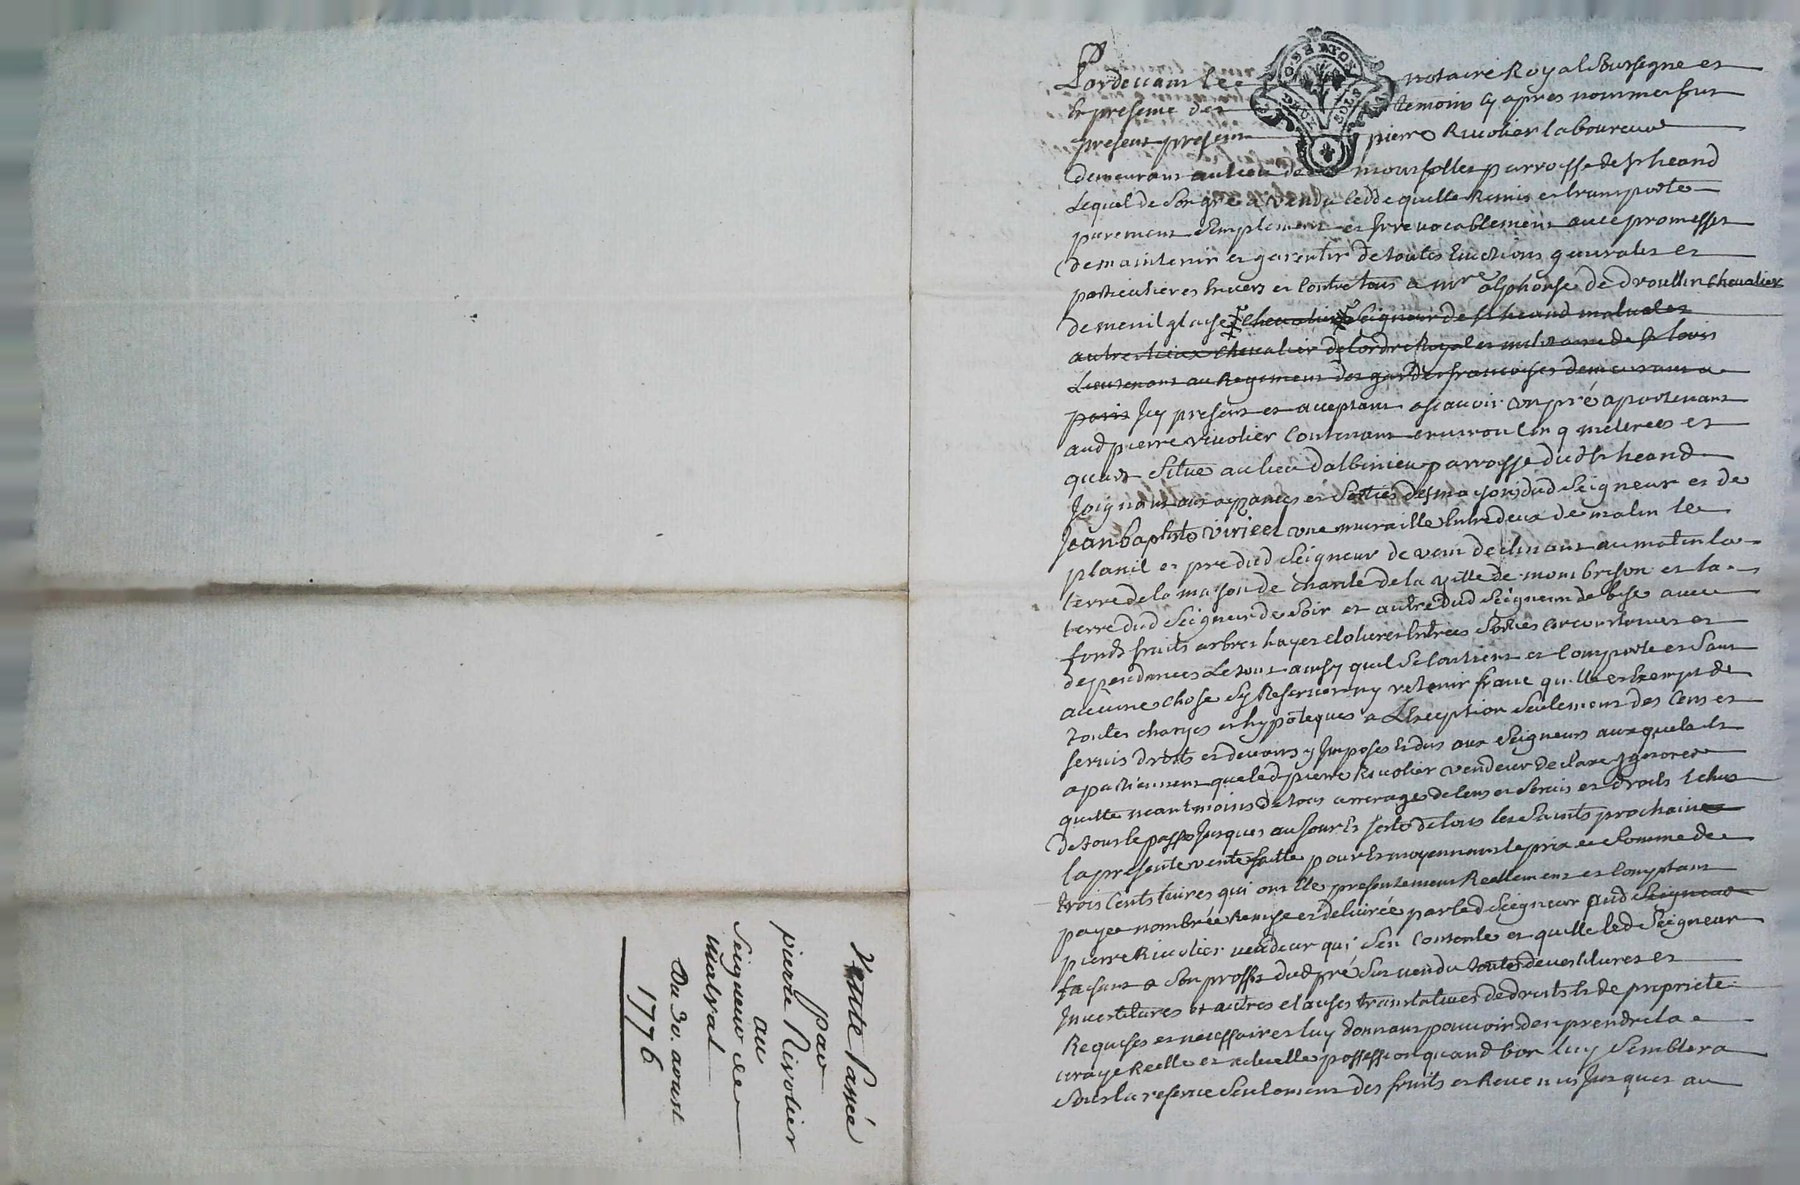 Pardevant le notaire Royal soussigne et
en presence des temoins cy apres nommes fut
present pierre Rivolier laboureur
demeurant au lieu de parroisse de st heand
Lequel de son gre a vendu cedde quitte Remis et transporte
purement simplement et irrevocablement avec promesses
de maintenir et garentir de toutes Evictions generales et
particulieres Envers et Contre tous a mre alphonse de droullin chevalier
de menil glaise chevalier seigneur de st heand malval et
autres lieux chevalier de lordre Royal et militaire de st louis
Lieutenant au Regiment des gardes francoises demeurant a
paris Icy present et acceptant ascavoir un pré apartenant
aud pierre rivolier Contenant environ Cinq meterees et
quart situe au lieu dalbinieu parroisse dud st heand
Joignant aux ayzances et sorties des maisons dud seigneur et de
Jean baptiste virieel une muraille entredeux de matin le
planil et pre dud seigneur de vent declinant au matin la
terre de la maison de charité de la ville de mombrison et la
terre dud seigneur de soir et autre dud seigneur de bise avec
fonds fruits arbres hayes clotures entrées sorties circonstances et
dependances Le tout ainsy quil se Contient et Comporte et sans
aucune chose sy Reserver ny retenir franc quitte et Exempt de
toutes charges et hypoteques a L'Exception seulement des Cens et
servis droits et devoirs y Imposes Et dus aux seigneurs auxquels ils
apartiennent que led pierre Rivolier vendeur declare Ignorer
quitte neantmoins de tous arrerages de Cens et servis et droits Echus
de tout le passé Jusques au Jour Et feste de tous les saints prochaine
la presente vente faitte pour Et moyennant le prix et somme de
trois Cents livres qui ont Ete presentement Reellement et Comptant
payee nombrée Remise et delivrée par led seigneur aud seigneur
pierre Rivolier vendeur qui s'en Contente et quitte led seigneur
faisant a son proffit dud pré sus vendu toutes devestitures et
Investitures et autres clauses translatives de droits Et de propriete
Requises et necessaires luy donnant pouvoir d'en prendre la
vraye Reelle et actuelle possession quand bon luy semblera
sous la reserve seulement des fruits et Revenus Jusques au
Vente Passée
par
pierre Rivolier
au
seigneur de
Malval
Du 30. aoust
1776